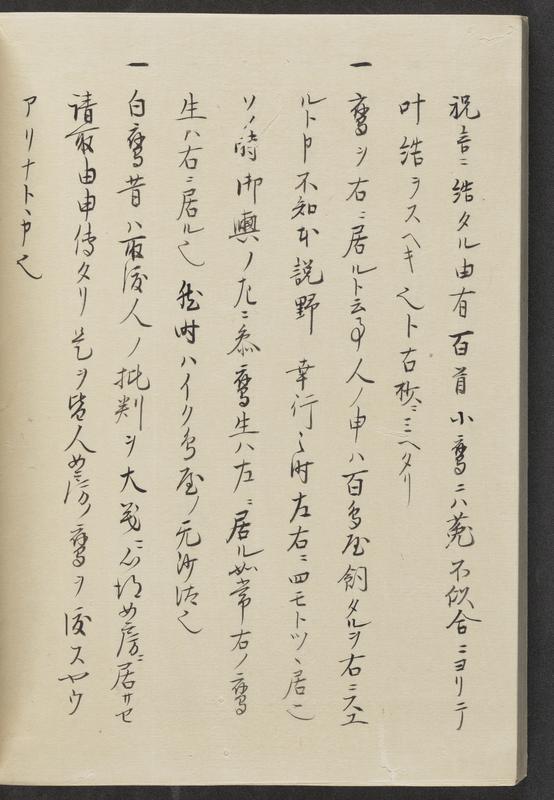 祝言ニ結タル由有百首小鷹ニハ菟不似合ニヨリテ
叶結ヲスヘキ也ト古抄ニミヘタリ
一 鷹ヲ右ニ居ルト云事人ノ申ハ百鳥屋飼タルヲ右ニスエ
ルト申不知本説野 幸行之時左右ニ四モトツヽ居也
ソノ時御輿ノ左ニ参鷹生ハ左ニ居ル如常右ノ鷹
生ハ右ニ居ル也 然時ハイク鳥屋ノ无沙汰也
一 白鷹昔ハ取渡人ノ批判ヲ大義ニ心得め房ニ居サセ
請取由申傳タリ是ヲ皆人め房ノ鷹ヲ渡スヤウ
アリナト申也